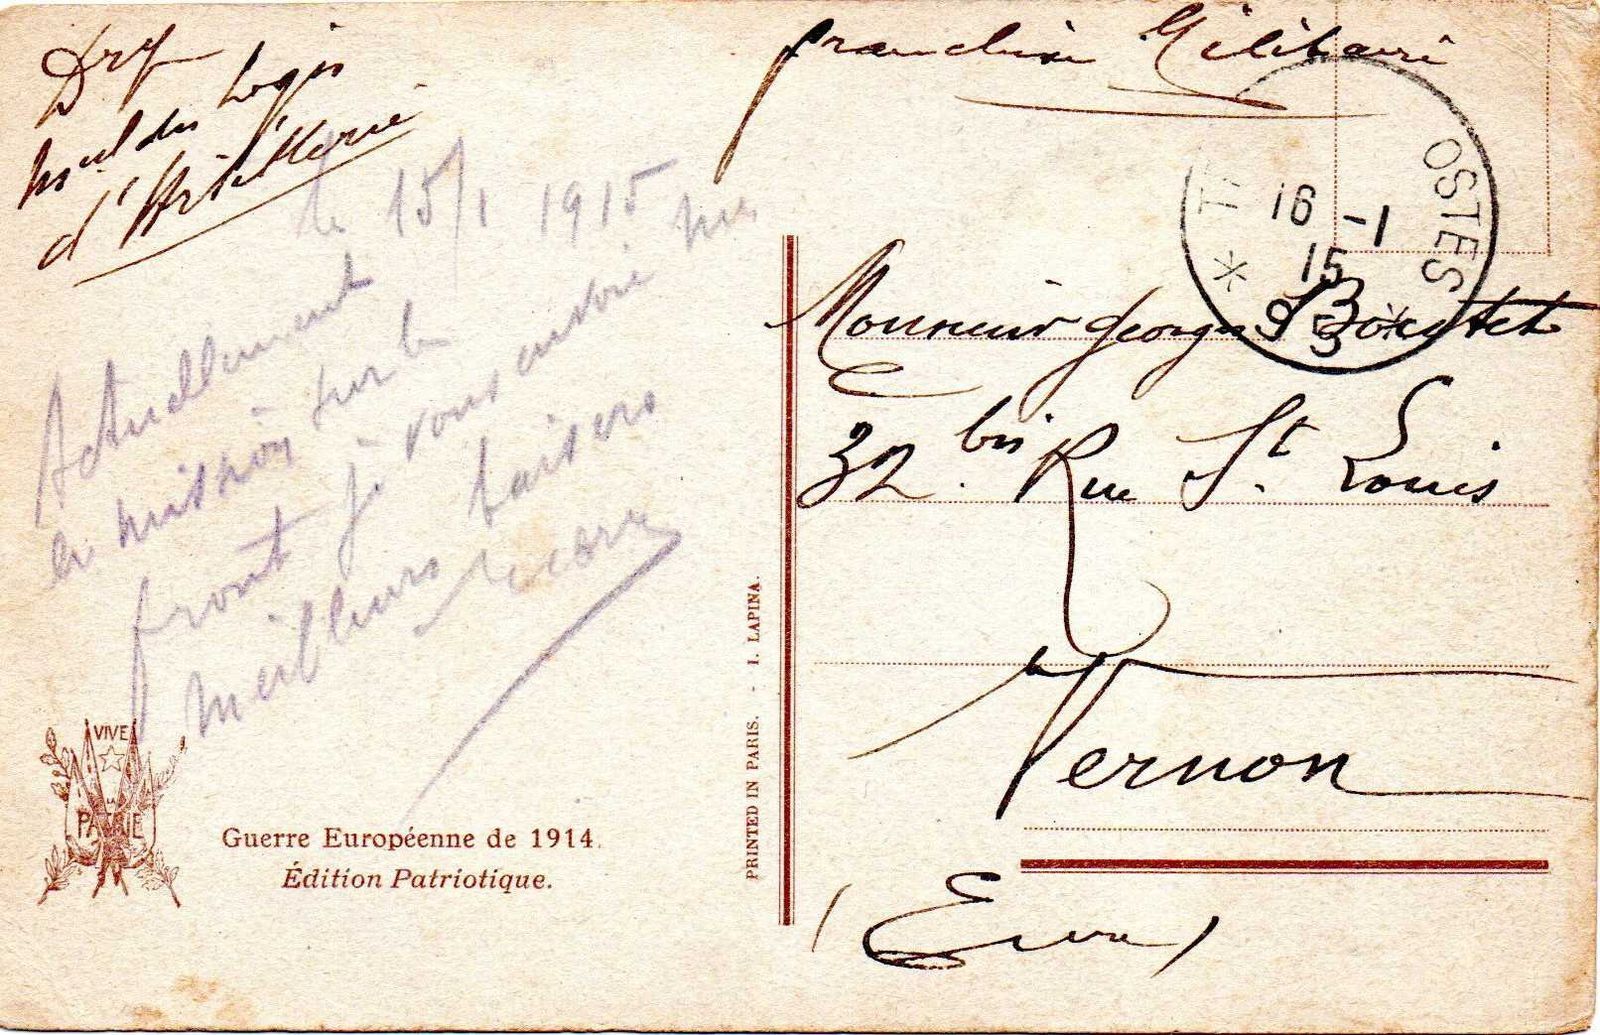 Dry
mal des Logis
d'Artillerie
le 15/1 1915
Actuellement
en mission sur le
front je vous envoie mes
meilleurs baisers
VIVE
LA
PATRIE
Guerre Européenne de 1914.
Édition Patriotique.
PRINTED IN PARIS. - I. LAPINA.
franchise Militaire
OSTES
16 -1
15
Monsieur Georges
32 bis Rue St. Louis
Vernon
(Eure)